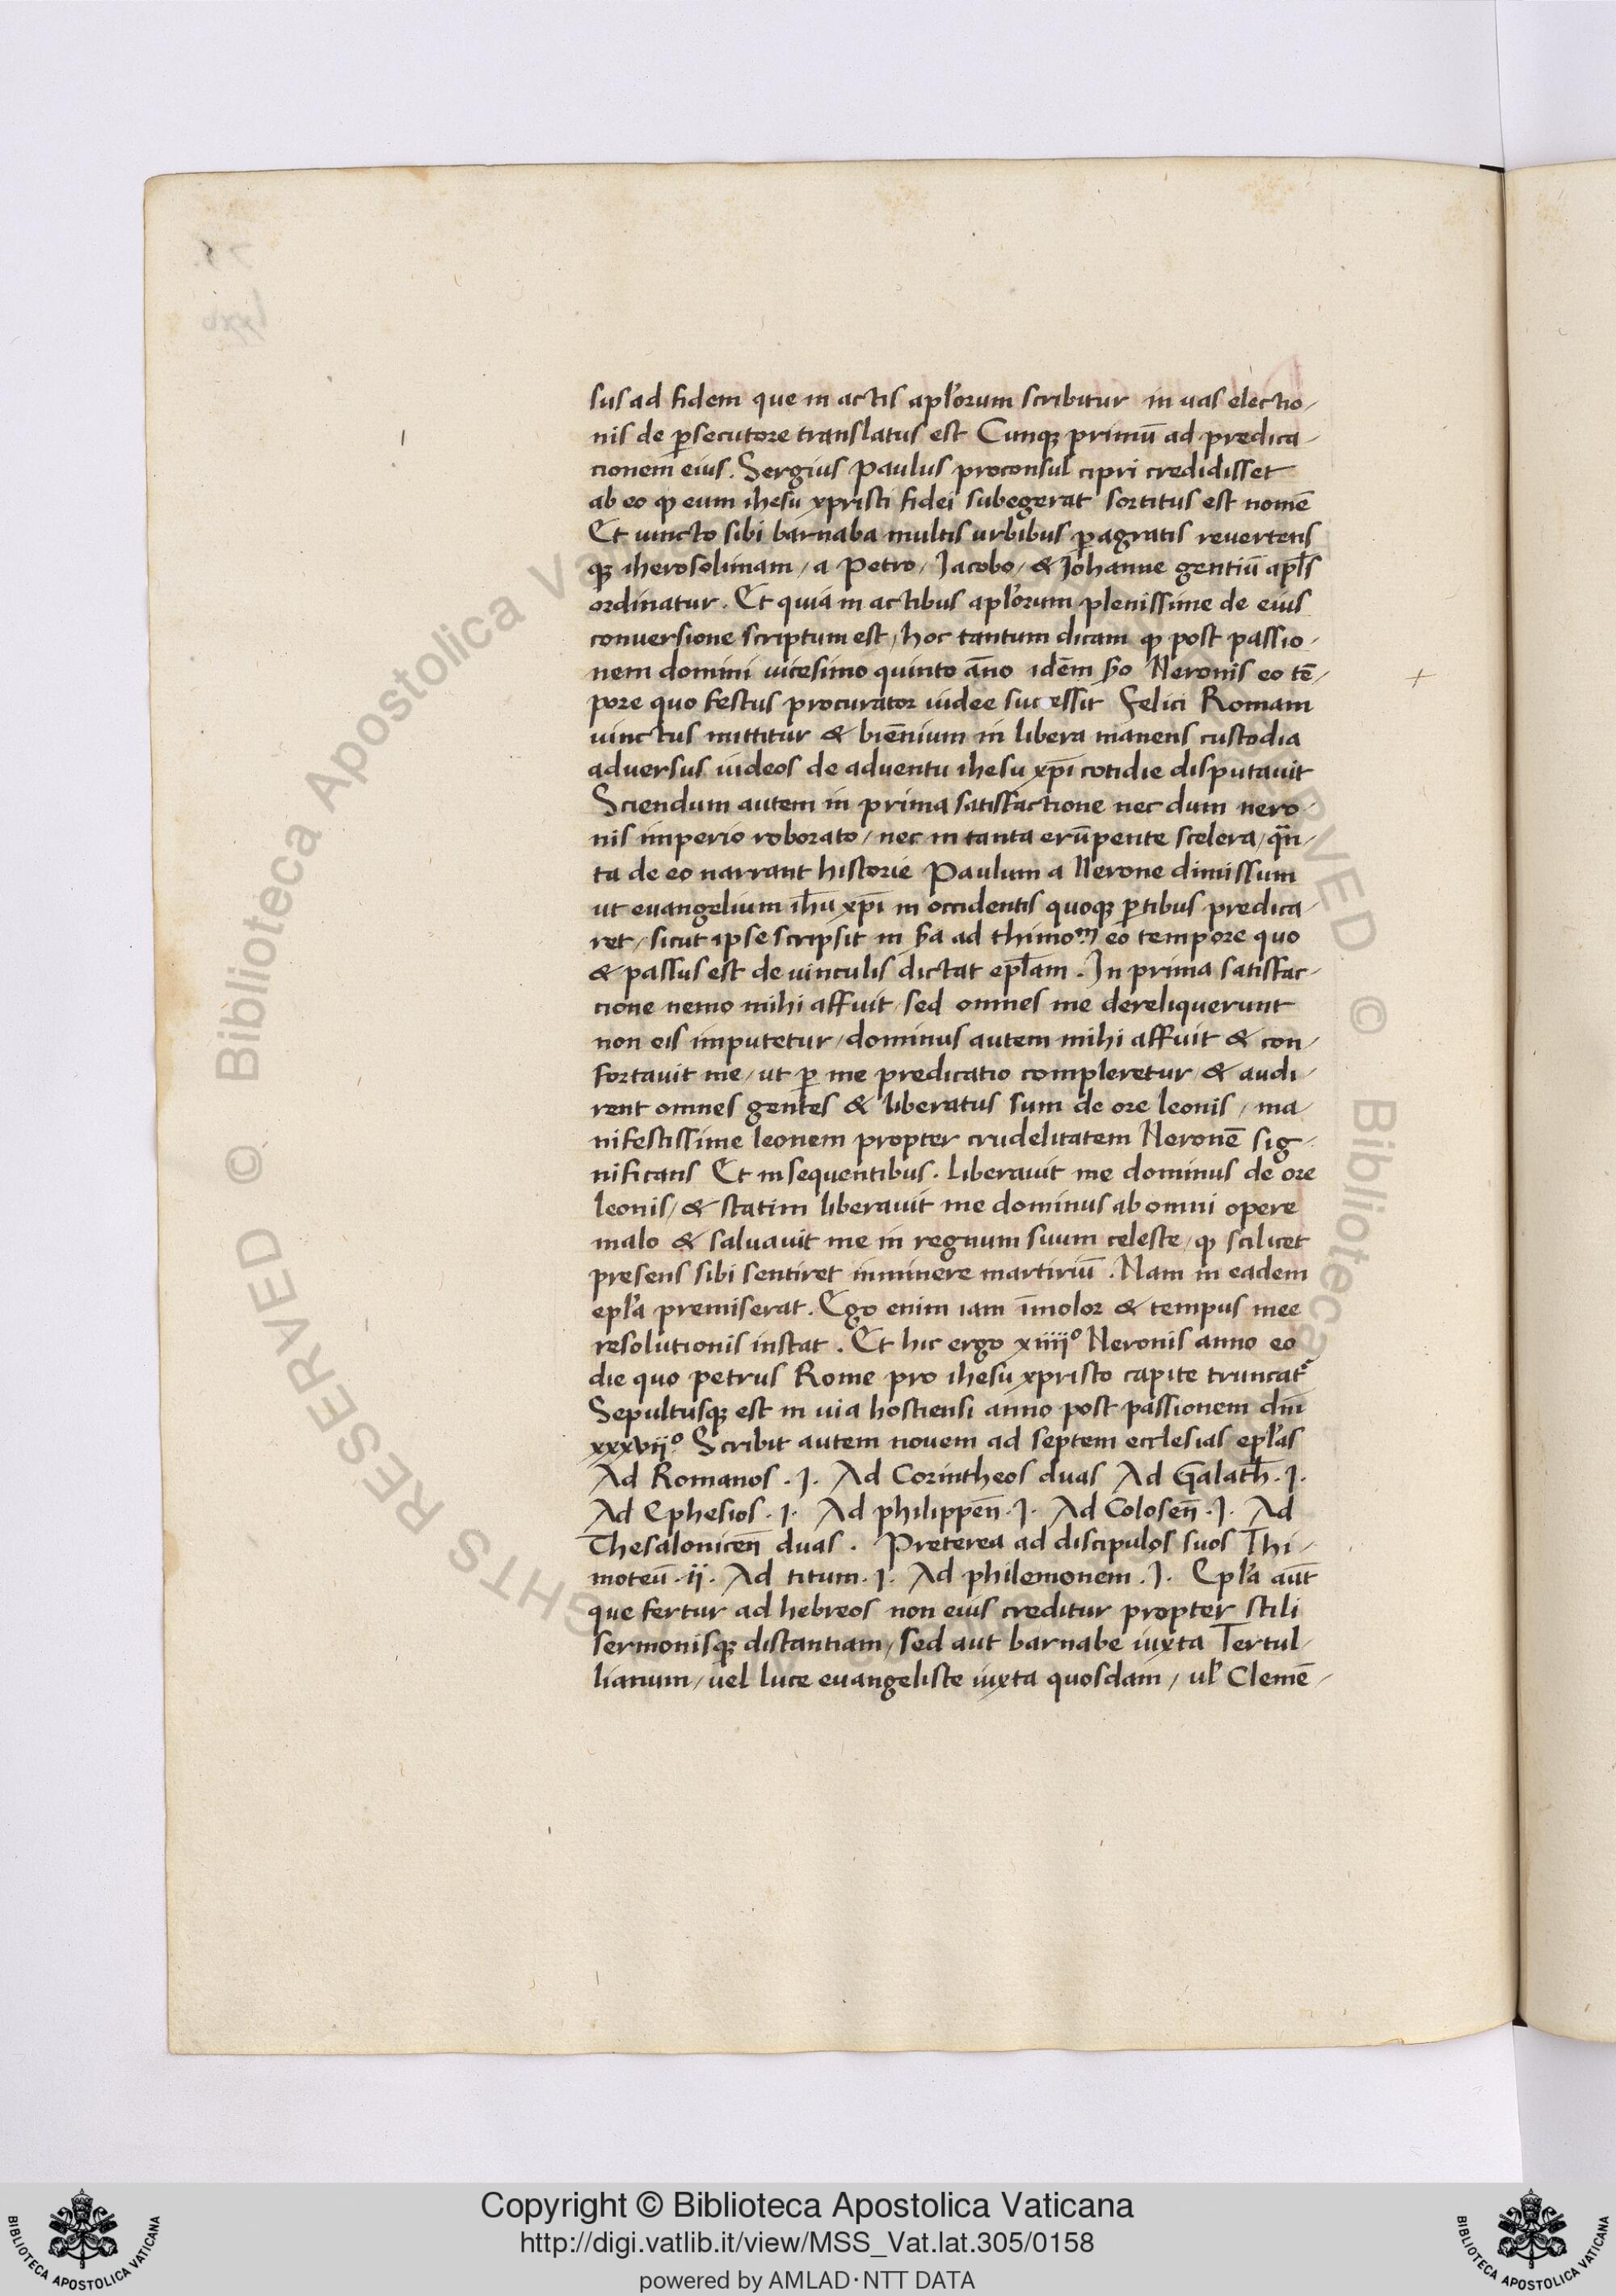 sus ad fidem que in actis apl'orum scribitur in uas electio/
nis de p̱secutore translatus est Cunqꝫ primū ad predica/
tionem eius. Sergius Paulus proconsul cipri credidisset
ab eo ꝙ eum ihesu xpristi fidei subegerat sortitus est nomē
Et uincto sibi barnaba multis urbibus p̱agratis revertens
qꝫ iherosolimam / a Petro / Jacobo / & Johanne gentiū apl's
ordinatur. Et quia in actibus apl'orum plenissime de eius
conversione scriptum est / hoc tantum dicam ꝙ post passio/
nem domini uicesimo quinto āno idēm ẜo Neronis eo tē/
pore quo festus procurator iudee suc essit Felici Romam
uinctus mittitur & biēnium in libera manens custodia
adversus iudeos de adventu ihesu xp̄i cotidie disputauit
Sciendum autem in prima satisfactione nec dum nero/
nis imperio roborato / nec in tanta erūpente scelera / qūn/
ta de eo narrant historie Paulum a Nerone dimissum
ut evangelium ih̄u xp̄i in occidentis quoqꝫ p̱tibus predica/
ret / sicut ipse scripsit in ẜa ad thimoᵐ eo tempore quo
& passus est de uinculis dictat epl'am. In prima satisfac/
tione nemo mihi affuit / sed omnes me dereliquerunt
non eis imputetur / dominus autem mihi affuit & con/
fortavit me / ut p̱ me predicatio compleretur / & audi/
rent omnes gentes & liberatus sum de ore leonis / ma/
nifestissime leonem propter crudelitatem Neronē sig/
nificans Et in sequentibus. Liberavit me dominus de ore
leonis / & statim liberavit me dominus ab omni opere
malo & salvavit me in regnum suum celeste / ꝙ scilicet
presens sibi sentiret inminere martiriū. Nam in eadem
epl'a premiserat. Ego enim iam īmolor & tempus mee
resolutionis instat. Et hic ergo xiiijº Neronis anno eo
die quo petrus Rome pro ihesu xpristo capite truncat᷑
Sepultusqꝫ est in uia hostiensi anno post passionem dnī
xxxvijº Scribit autem novem ad septem ecclesias epl'as
Ad Romanos .J. Ad Corintheos duas Ad Galath̄ .J.
Ad Ephesios .J. Ad philippen̄ .J. Ad Colosen̄ .J. Ad
Thesalonicen̄ duas. Preterea ad discipulos suos Thi/
moteū .ij. Ad titum .J. Ad philemonem .J. Epl'a aūt
que fertur ad hebreos non eius creditur propter stili
sermonisqꝫ distantiam / sed aut barnabe iuxta Tertul/
lianum / vel luce evangeliste iuxta quosdam / ul' Clemē/
Copyright © Biblioteca Apostolica Vaticana
http://digi.vatlib.it/view/MSS_Vat.lat.305/0158
powered by AMLAD·NTT DATA